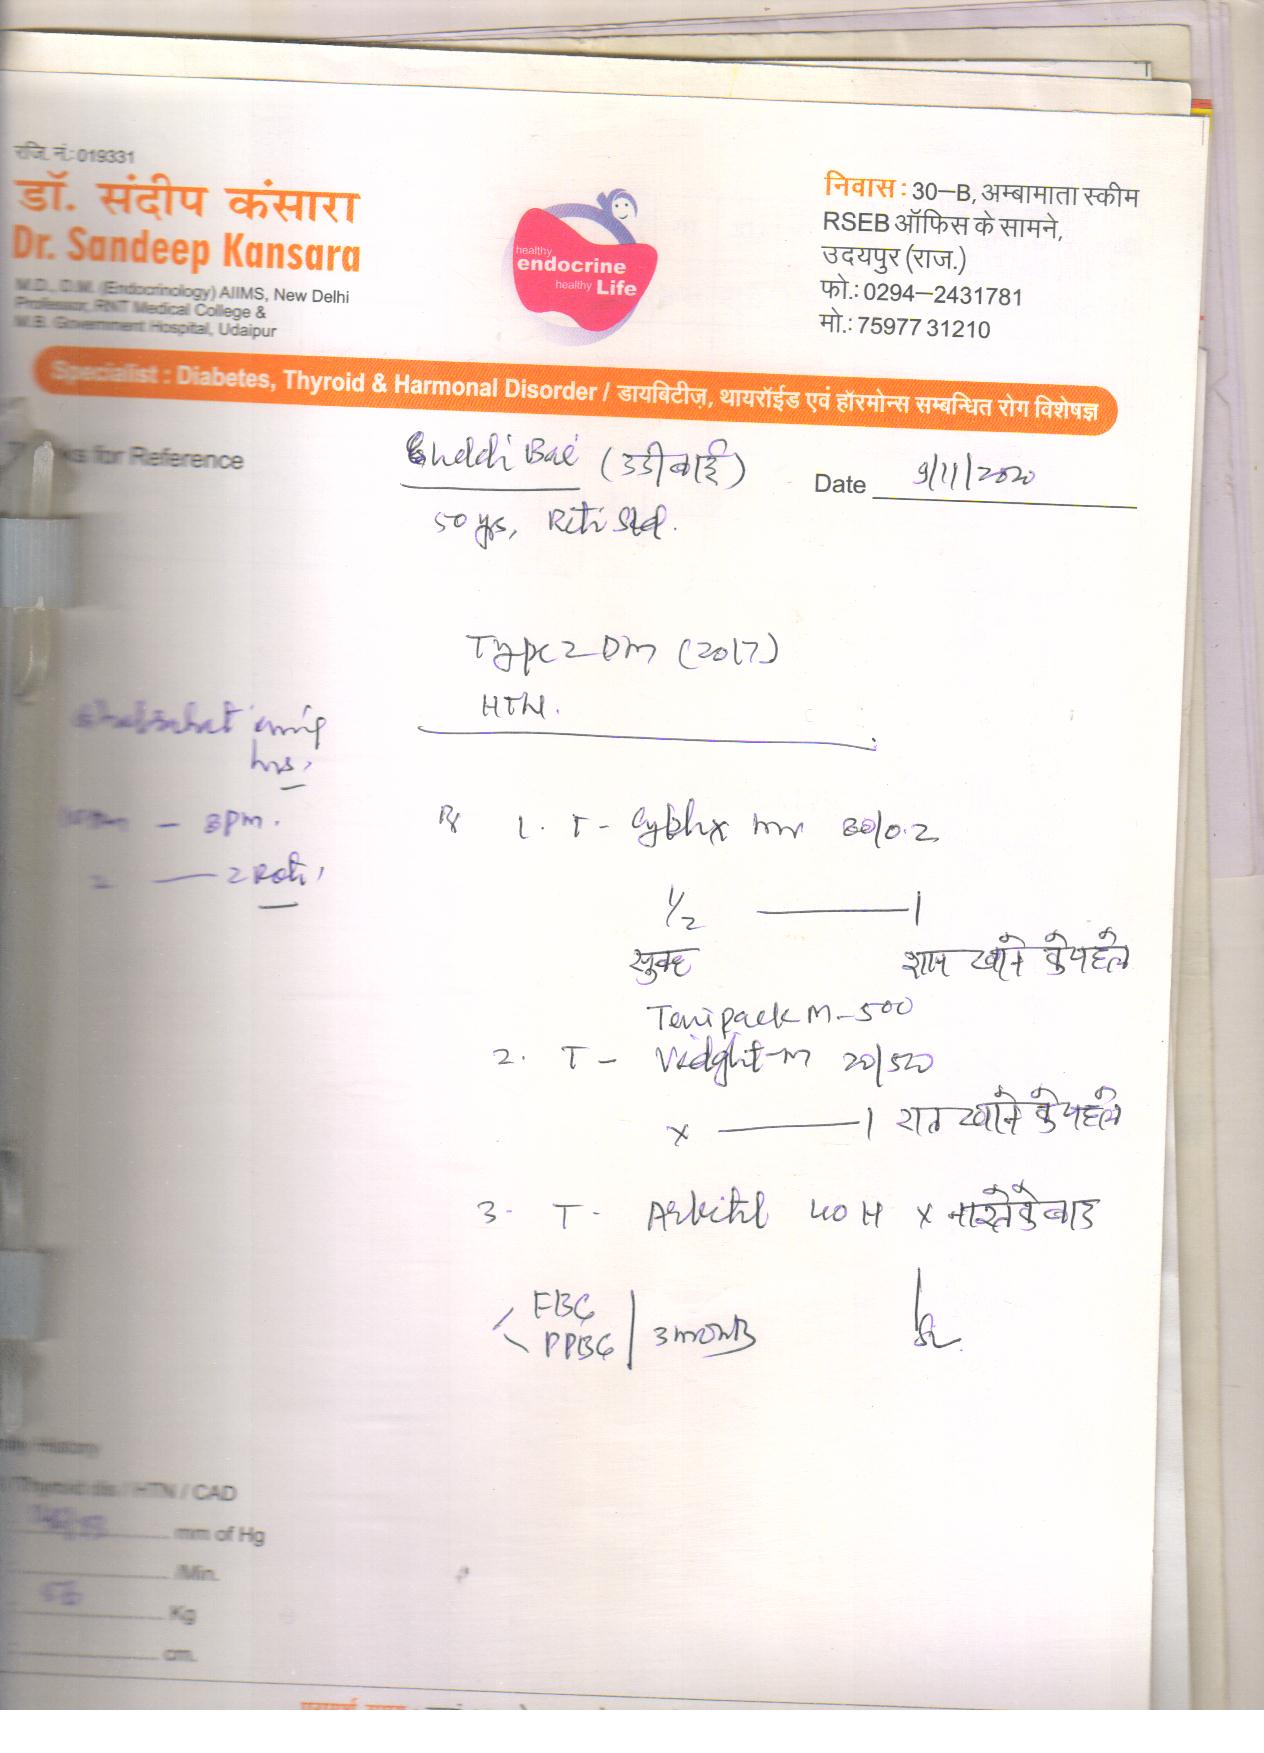 रजि. नं.: 019331
डॉ. संदीप कंसारा
Dr. Sandeep Kansara
M.D., D.M. (Endocrinology) AIIMS, New Delhi
Professor, RNT Medical College &
M.B. Government Hospital, Udaipur
healthy
endocrine
healthy Life
निवास : 30–B, अम्बामाता स्कीम
RSEB ऑफिस के सामने,
उदयपुर (राज.)
फो.: 0294–2431781
मो.: 75977 31210
Specialist : Diabetes, Thyroid & Harmonal Disorder / डायबिटीज़, थायरॉईड एवं हॉरमोन्स सम्बन्धित रोग विशेषज्ञ
for Reference
Bai (उदीबाई)
Date 9/11/2020
50 ys,
Type 2 DM (2017)
HTN.
hrs,
– 3pm.
2 — 2 Roti,
Rx 1. T - 30/0.2
1/2 — 1
सुबह शाम खाने के पहले
Tenipack M-500
2. T - M 20/500
x — 1 रात खाने के पहले
3. T - Arbitel 40 H x नाश्ते के बाद
FBG
PPBG 3 months
History
/ Thyroid dis / HTN / CAD
mm of Hg
/Min.
Kg
cm.